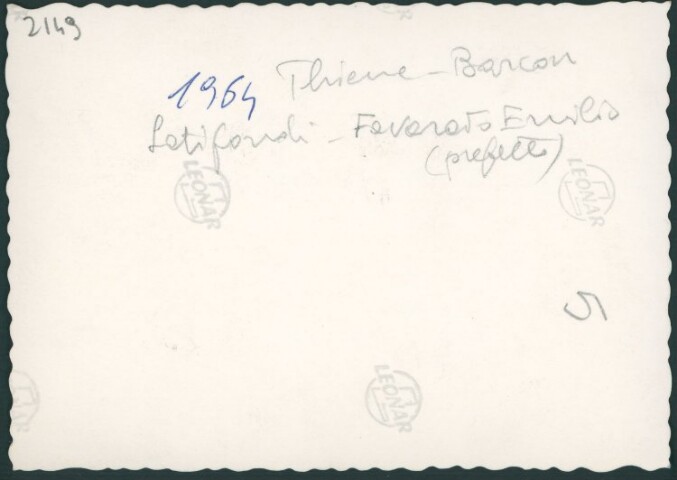 2149
1964 Thiene - Barcon
Latifondi - Favarato Emilio
(prefetto)
LEONAR
LEONAR
5
LEONAR